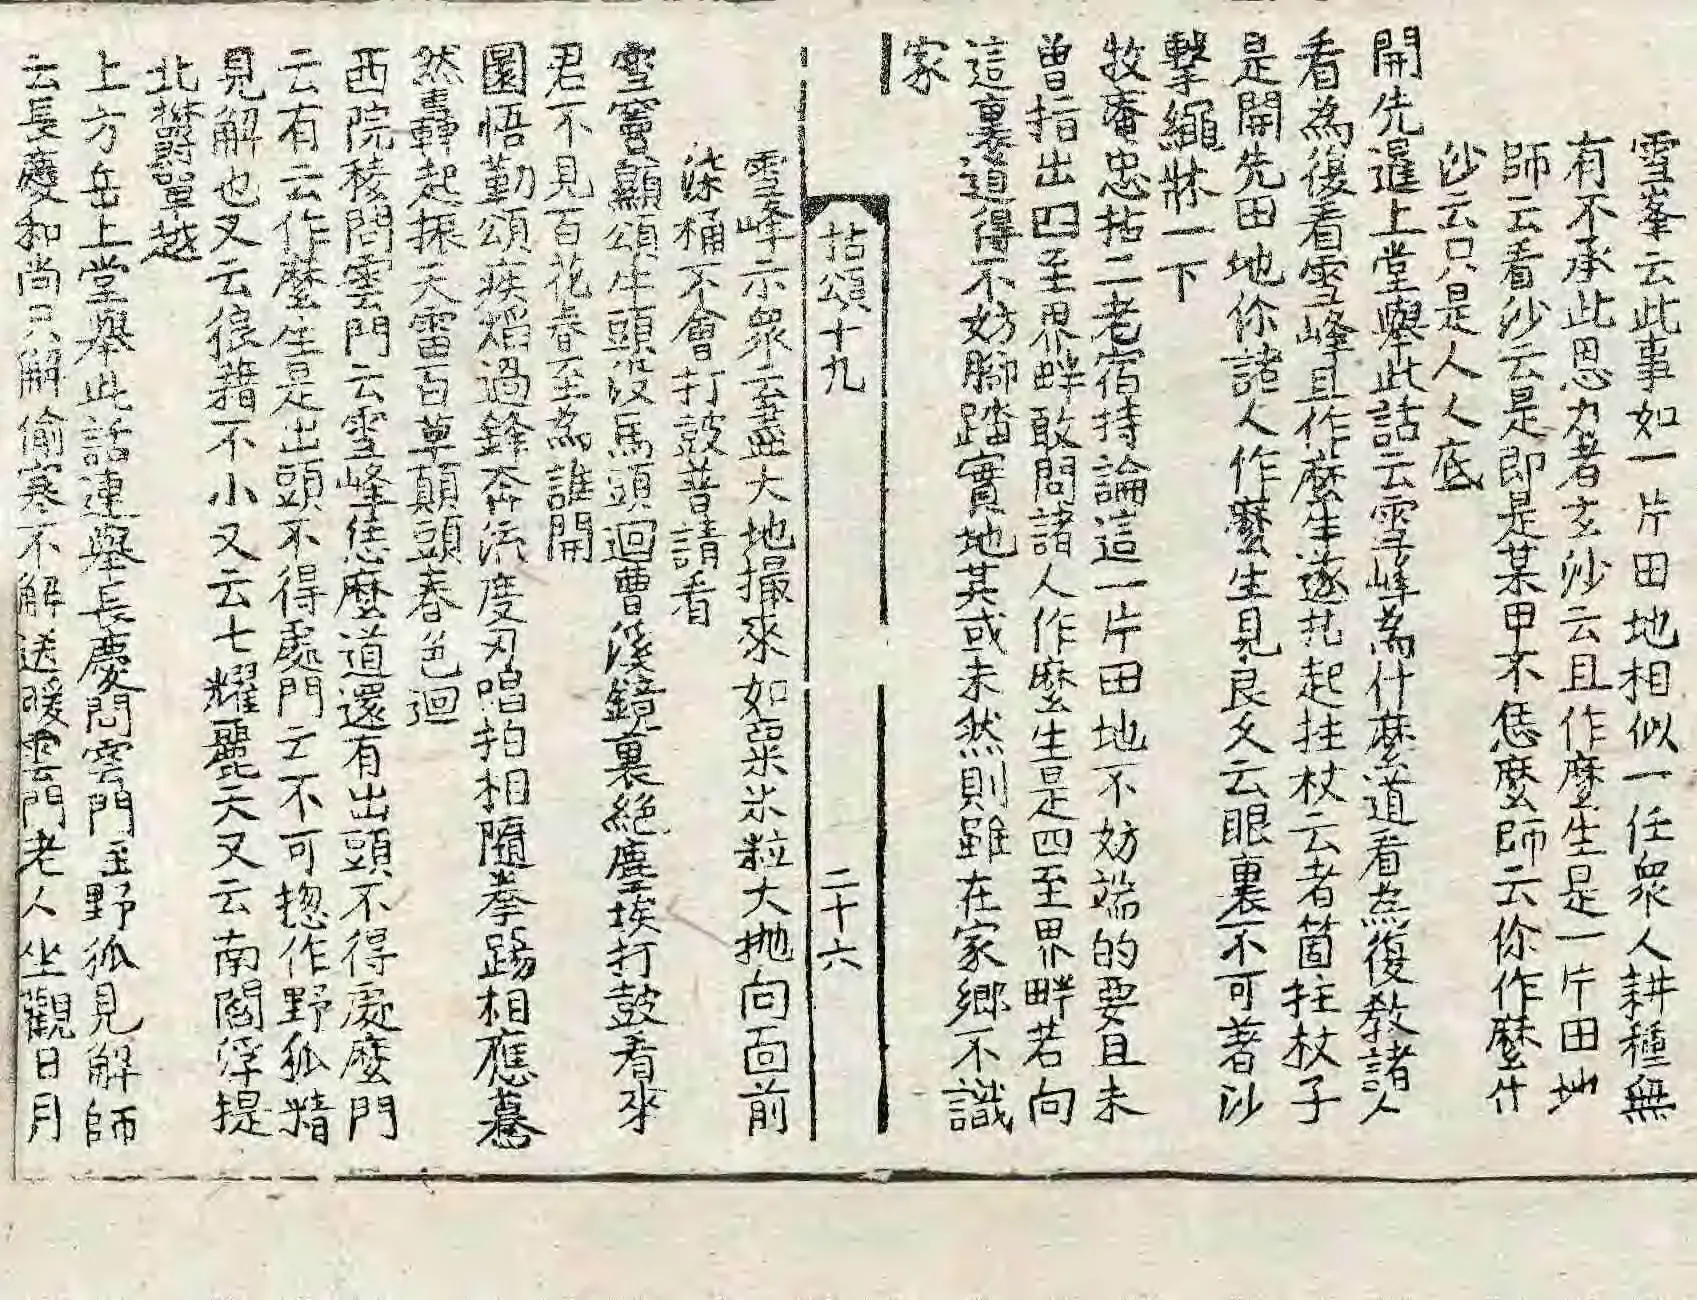 雪峯云此事如一片田地相似一任衆人耕種無
有不承此恩力者玄沙云且作麽生是一片田地
師云看沙云是即是某甲不恁麽師云你作麽什
沙云只是人人底
開先暹上堂舉此話云雪峰爲什麽道看爲復教諸人
看為復看雪峰且作麽生遂拈起拄杖云者箇拄杖子
是開先田地你諸人作麽生見良久云眼裏不可著沙
擊繩牀一下
牧菴忠拈二老宿持論這一片田地不妨端的要且未
曾指出四至界畔敢問諸人作麽生是四至界畔若向
這裏道得不妨腳踏實地其或未然則雖在家鄉不識
家
拈頌十九 二十六
雪峰示衆云盡大地撮來如粟米粒大抛向面前
柒桶不會打鼓普請看
雪竇顯頌牛頭没馬頭迴曹溪鏡裏絕塵埃打鼓看來
君不見百花春至為誰開
圜悟勤頌疾熖過鋒奔流度刃唱拍相隨拳踢相應驀
然轟起振天雷百草顛頭春色迴
西院稜問雲門云雪峰恁麽道還有出頭不得處麽門
云有云作麽生是出頭不得處門云不可揔作野狐精
見解也又云狼藉不小又云七耀麗天又云南閻浮提
北欝單越
上方岳上堂舉此話連舉長慶問雲門至野狐見解師
云長慶和尚只解偷寒不解送暖雲門老人坐觀日月